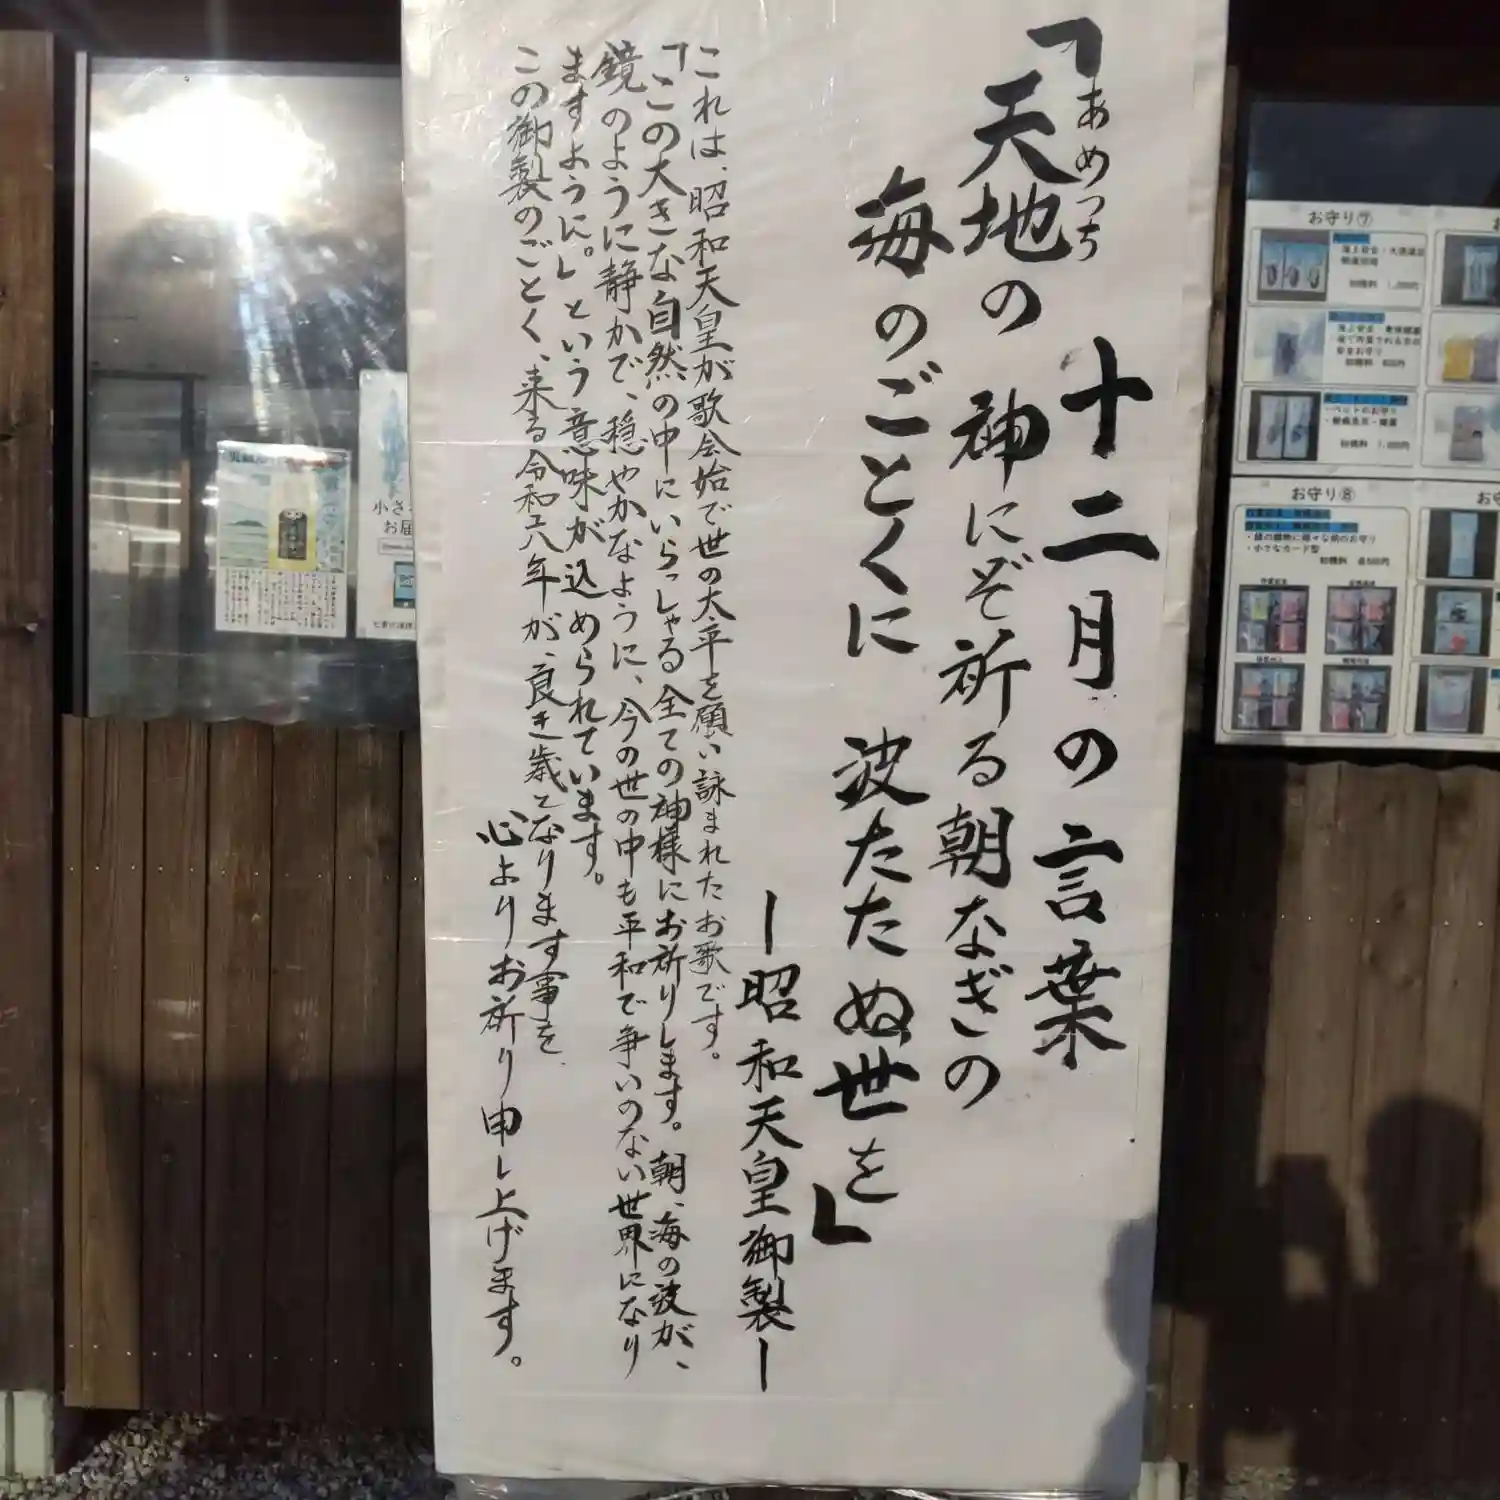 十二月の言葉
「天地の 神にぞ祈る朝なぎの
あめつち
海のごとくに 波たたぬ世を」
ー昭和天皇御製ー
これは、昭和天皇が歌会始で世の太平を願い詠まれたお歌です。
「この大きな自然の中にいらっしゃる全ての神様にお祈りします。朝、海の波が、
鏡のように静かで、穏やかなように、今の世の中も平和で争いのない世界になり
ますように。」という意味が込められています。
この御製のごとく、来る令和六年が、良き歳となります事を
心よりお祈り申し上げます。
お守り⑦
初穂料 1,000円
・ペットのお守り
お守り⑧
・小さなカード型
初穂料 各500円
小さな
お届